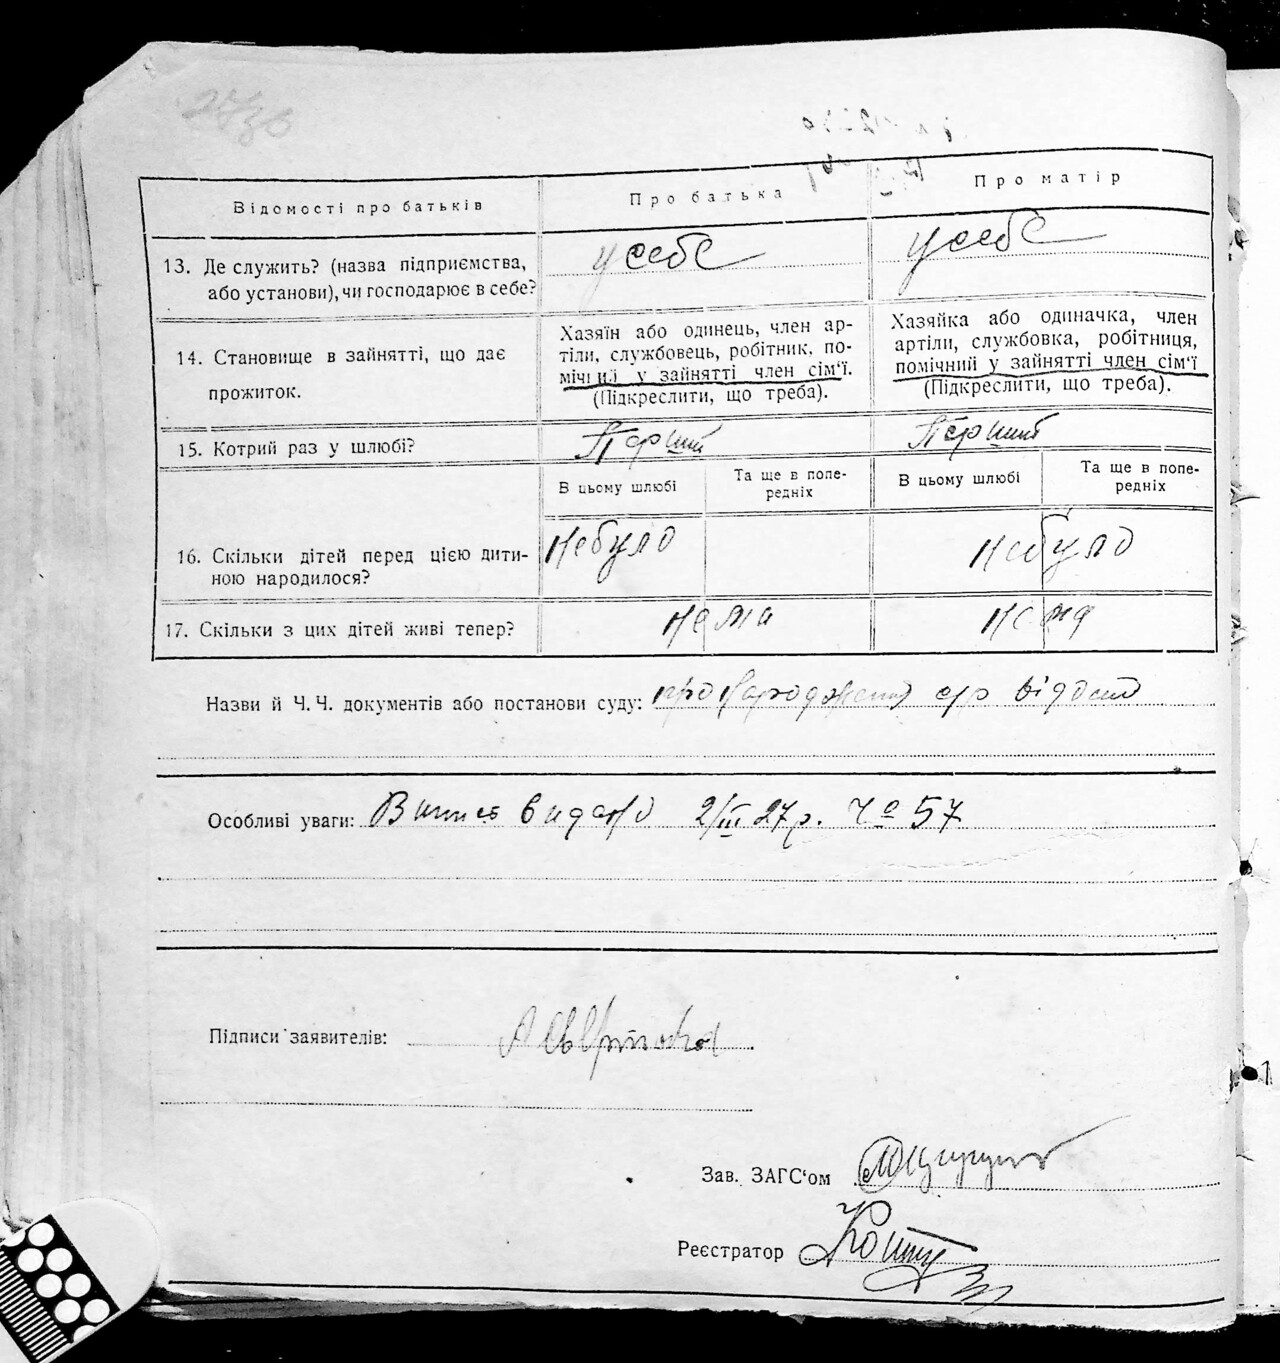 27зв
Відомості про батьків
Про батька
Про матір
13. Де служить? (назва підприємства, або установи), чи господарює в себе?
у себе
у себе
14. Становище в зайнятті, що дає прожиток.
Хазяїн або одинець, член ар-
тіли, службовець, робітник, по-
мічний у зайнятті член сім‘ї.
(Підкреслити, що треба).
Хазяйка або одиначка, член
артіли, службовка, робітниця,
помічний у зайнятті член сім‘ї
(Підкреслити, що треба).
15. Котрий раз у шлюбі?
Перший
Перший
В цьому шлюбі
Та ще в попе-
редніх
В цьому шлюбі
Та ще в попе-
редніх
16. Скільки дітей перед цією дити-
ною народилося?
Небуло
Небуло
17. Скільки з цих дітей живі тепер?
Нема
Нема
Назви й Ч. Ч. документів або постанови суду: про народження с/р
Особливі уваги: Випис видано 2/III 27 р. Чо 57
Підписи заявителів:
Зав. ЗАГС‘ом
Реєстратор